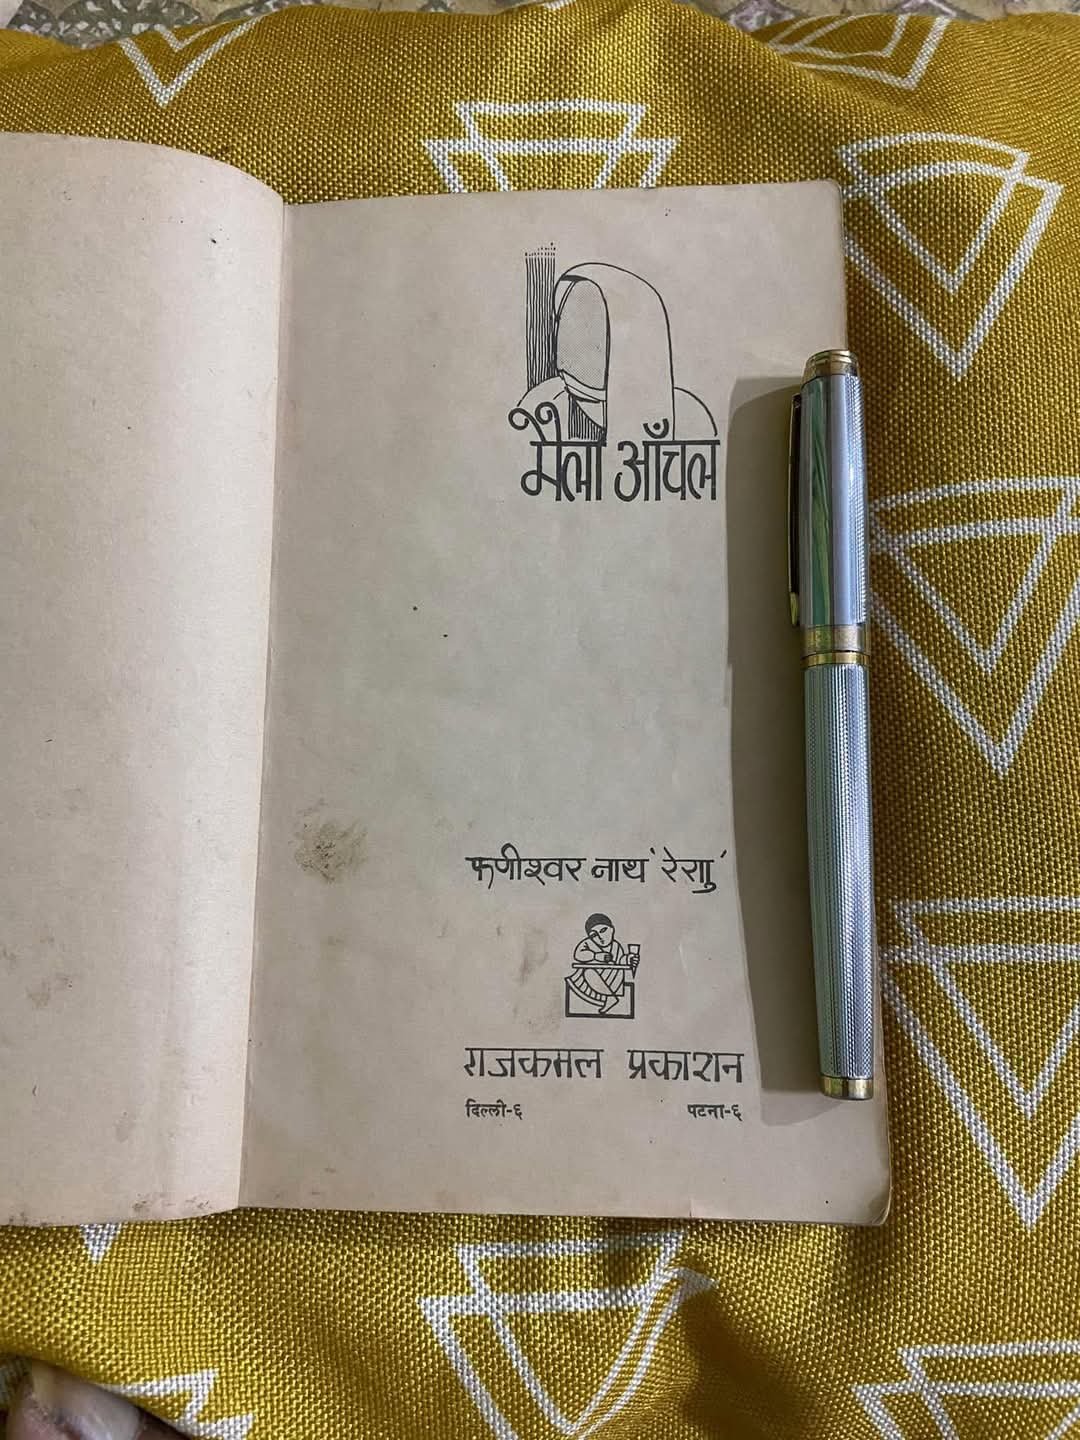 मैला आँचल
फणीश्वर नाथ 'रेणु'
राजकमल प्रकाशन
दिल्ली-६ पटना-६